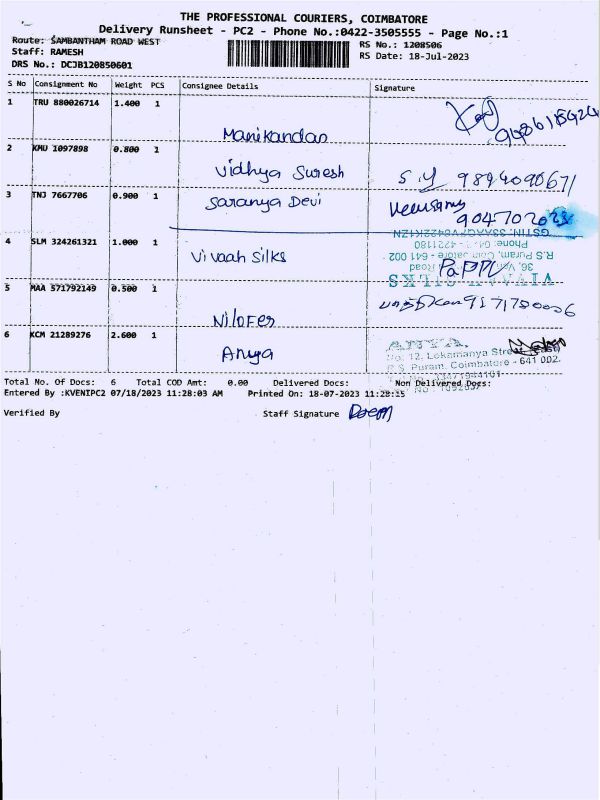 THE PROFESSIONAL COURIERS, COIMBATORE
Delivery Runsheet - PC2 - Phone No.:0422-3505555 - Page No.:1
Route: SAMBANTHAM ROAD WEST
RS No.: 1208506
Staff: RAMESH
RS Date: 18-Jul-2023
DRS No.: DCJB120850601
S No Consignment No Weight PCS Consignee Details Signature
1 TRU 880026714 1.400 1
Manikandan
2 KMU 1097898 0.800 1
Vidhya Suresh
S.Y 9894090671
3 TNJ 7667706 0.900 1
Saranya Devi
4 SLM 324261321 1.000 1
Vivaah Silks
GSTIN:
Phone:
R.S. Puram, Coimbatore - 641 002
36,
VIVAAH SILKS
5 MAA 571792149 0.500 1
Nilofer
6 KCM 21289276 2.600 1
Anya
ANYA,
No: 12, Lokamanya Street
R.S. Puram, Coimbatore - 641 002.
Total No. Of Docs: 6 Total COD Amt: 0.00 Delivered Docs: Non Delivered Docs:
Entered By :KVENIPC2 07/18/2023 11:28:03 AM Printed On: 18-07-2023 11:28:15
Verified By Staff Signature